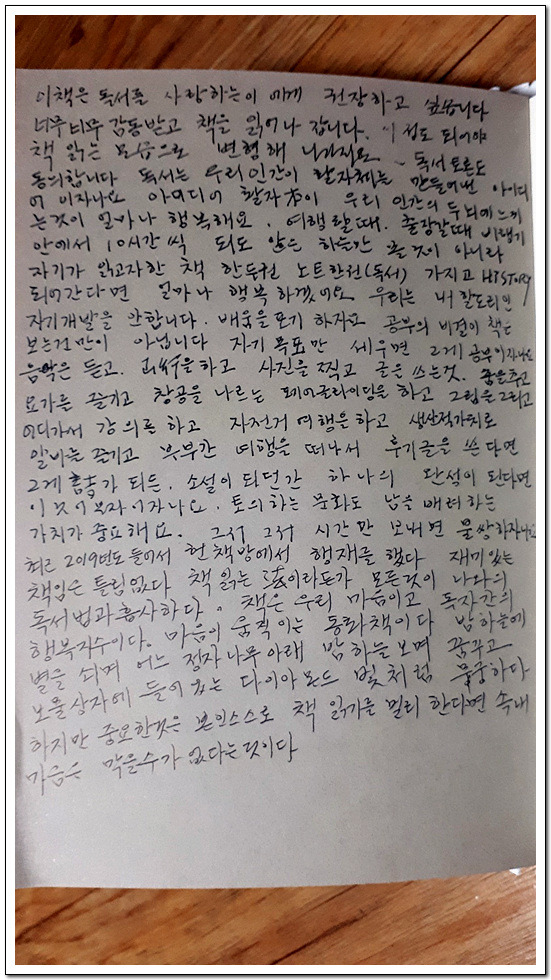 이책은 독서를 사랑하는이 에게 권장하고 싶습니다
너무너무 감동받고 책을 읽어나 갑니다. 이정도 되어야
책 읽는 모습으로 변형해 나가지요 ~ 독서토론도
동의합니다 독서는 우리인간이 활자체는 만들어낸 아이디
어 이자나요 아이디어 활자本이 우리 인간의 두뇌에 느끼
는것이 얼마나 행복해요. 여행할때. 출장갈때 비행기
안에서 10시간씩 되도 않은 하늘만 볼것이 아니라
자기가 읽고자한 책 한두권 노트한권(독서) 가지고 HISTORY
되어간다면 얼마나 행복하겠어요 우리는 내 할도리인
자기개발을 안합니다. 배움을 포기 하지요 공부의 비결이 책은
보는것만이 아닙니다 자기 목표만 세우면 그게 공부이자나요
음악은 듣고. 을하고 사진을 찍고 글을 쓰는것. 춤을추고
요가를 즐기고 창공을 나르는 패러글라이딩을 하고 그림을 그리고
어디가서 강의를 하고 자전거 여행은하고 생산적가치로
일하는 즐기고 부부간 여행을 떠나서 후기글을 쓴다면
그게 가 되든. 소설이 되던간 하나의 완성이 된다면
이것이 부자이자나요. 토의하는 문화도 남을 배려하는
가치가 중요해요. 그저 그저 시간만 보내면 불쌍하자나요
최근 2019년도 들어서 헌책방에서 횡재를 했다 재미있는
책임은 틀림없다 책 읽는 法이라든가 모든것이 나와의
독서법과 흡사하다. 책은 우리 마음이고 독자간의
행복지수이다. 마음이 움직이는 동화책이다 밤하늘에
별을 쉬며 어느 정자나무아래 밤하늘 보며 꿈꾸고
보물상자에 들어있는 다이아몬드 빛처럼 무궁하다
하지만 중요한것은 본인스스로 책 읽기를 멀리 한다면 속내
가음은 막을수가 없다는것이다